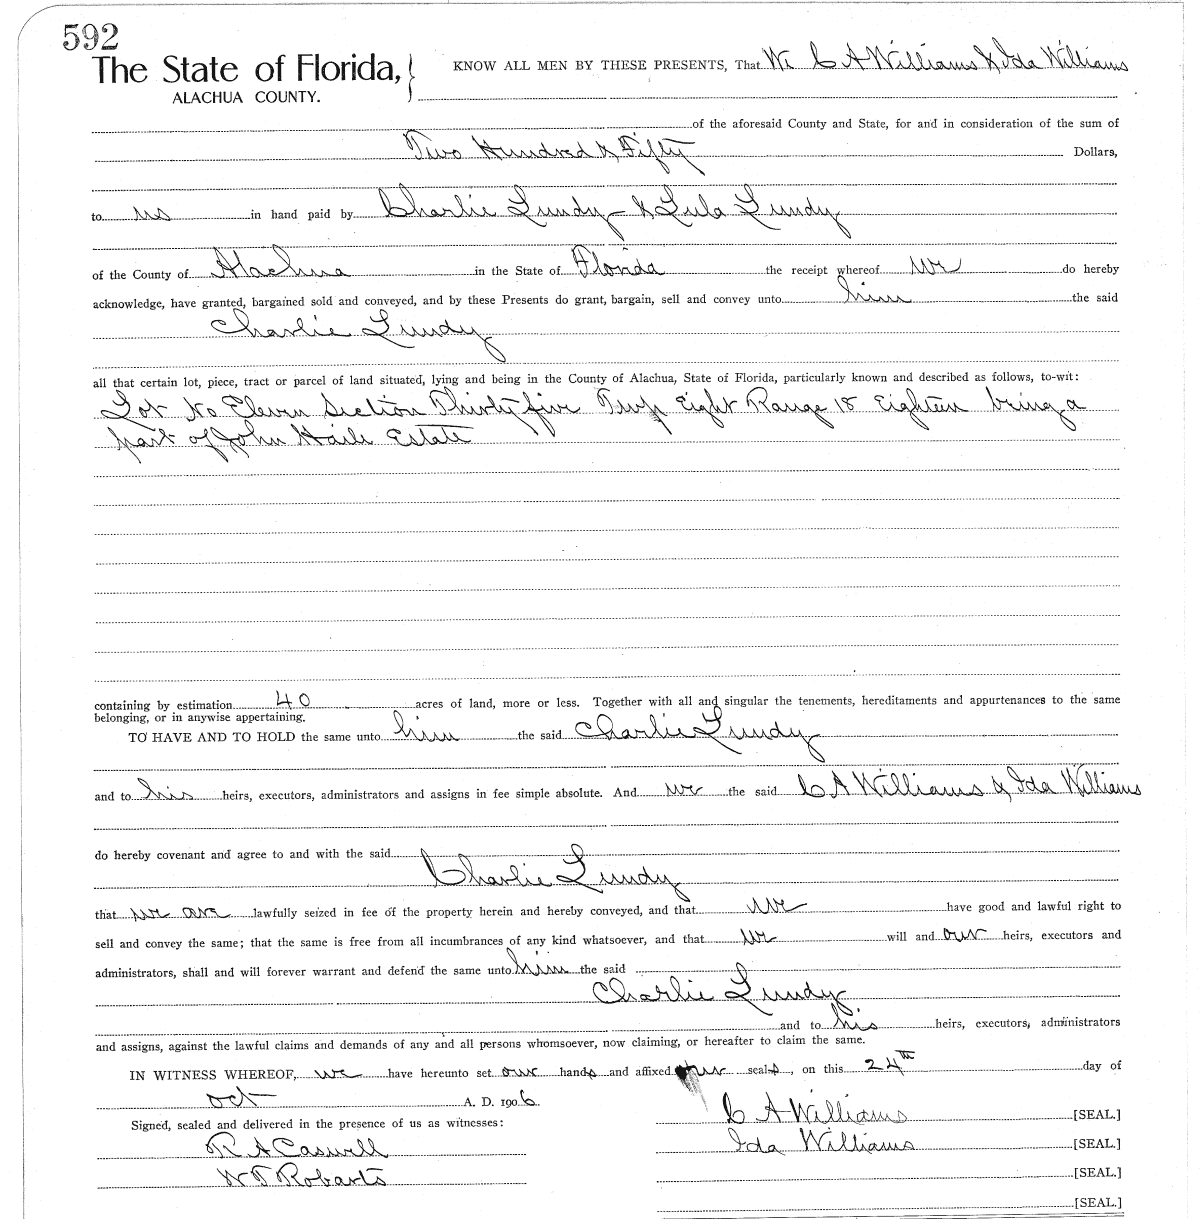 592
The State of Florida, } KNOW ALL MEN BY THESE PRESENTS, That We C A Williams & Ida Williams
ALACHUA COUNTY.
of the aforesaid County and State, for and in consideration of the sum of
Two Hundred & Fifty Dollars,
to us in hand paid by Charlie Lundy & Lula Lundy
of the County of Alachua in the State of Florida the receipt whereof we do hereby
acknowledge, have granted, bargained sold and conveyed, and by these Presents do grant, bargain, sell and convey unto him the said
Charlie Lundy
all that certain lot, piece, tract or parcel of land situated, lying and being in the County of Alachua, State of Florida, particularly known and described as follows, to-wit:
Lot No Eleven Section Thirty five Twp Eight Range 18 Eighteen being a
part of John Haile Estate
containing by estimation 40 acres of land, more or less. Together with all and singular the tenements, hereditaments and appurtenances to the same
belonging, or in anywise appertaining.
TO HAVE AND TO HOLD the same unto him the said Charlie Lundy
and to his heirs, executors, administrators and assigns in fee simple absolute. And we the said C A Williams & Ida Williams
do hereby covenant and agree to and with the said
Charlie Lundy
that we are lawfully seized in fee of the property herein and hereby conveyed, and that we have good and lawful right to
sell and convey the same; that the same is free from all incumbrances of any kind whatsoever, and that we will and our heirs, executors and
administrators, shall and will forever warrant and defend the same unto him the said
Charlie Lundy
and to his heirs, executors, administrators
and assigns, against the lawful claims and demands of any and all persons whomsoever, now claiming, or hereafter to claim the same.
IN WITNESS WHEREOF, we have hereunto set our hands and affixed our seals, on this 24th day of
Oct A. D. 1906.
Signed, sealed and delivered in the presence of us as witnesses:
C A Williams [SEAL.]
R A Caswell
Ida Williams [SEAL.]
W T Roberts
[SEAL.]
[SEAL.]